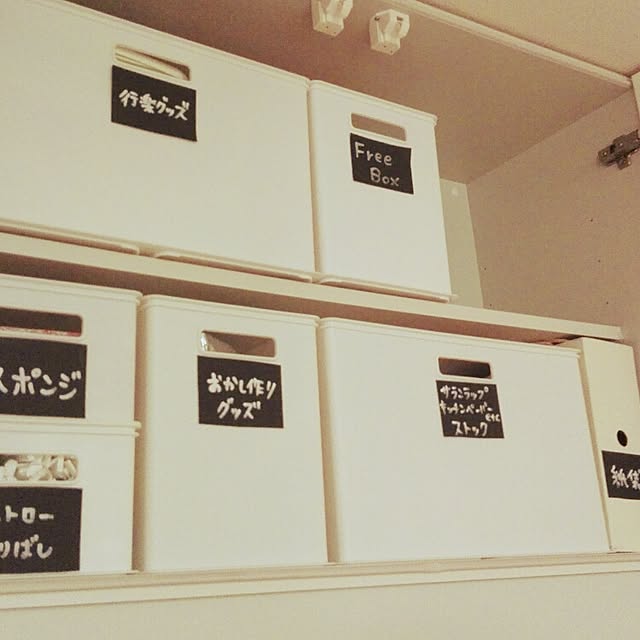 行楽グッズ
Free
Box
スポンジ
おかし作り
グッズ
サランラップ
キッチンペーパー
ストック
トロー
りばし
紙袋